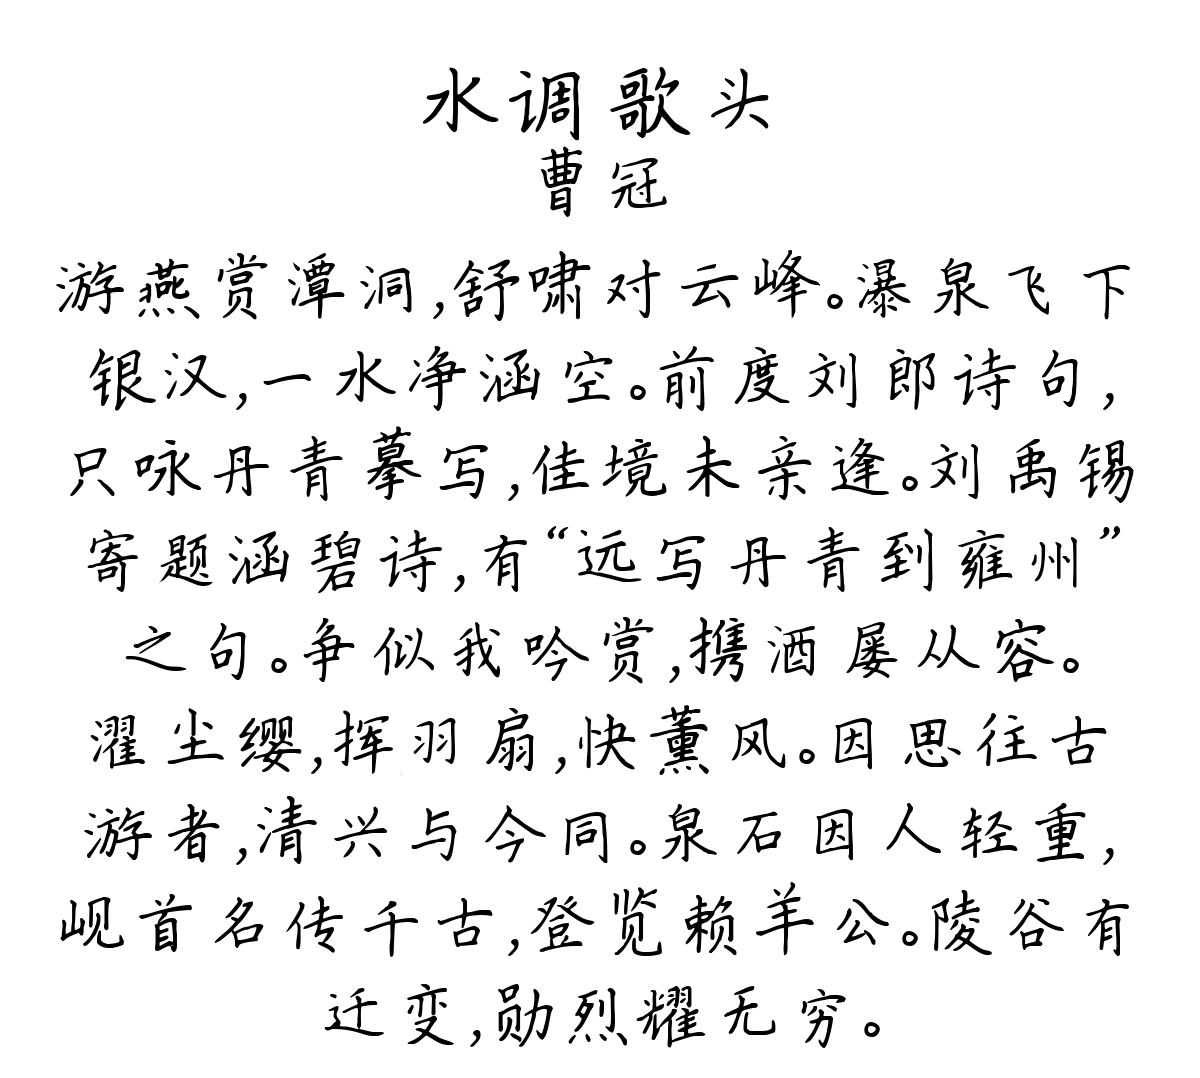 水调歌头
曹冠
游燕赏潭洞,舒啸对云峰。瀑泉飞下
银汉,一水净涵空。前度刘郎诗句,
只咏丹青摹写,佳境未亲逢。刘禹锡
寄题涵碧诗,有“远写丹青到雍州”
之句。争似我吟赏,携酒屡从容。
濯尘缨,挥羽扇,快薰风。因思往古
游者,清兴与今同。泉石因人轻重,
岘首名传千古,登览赖羊公。陵谷有
迁变,勋烈耀无穷。